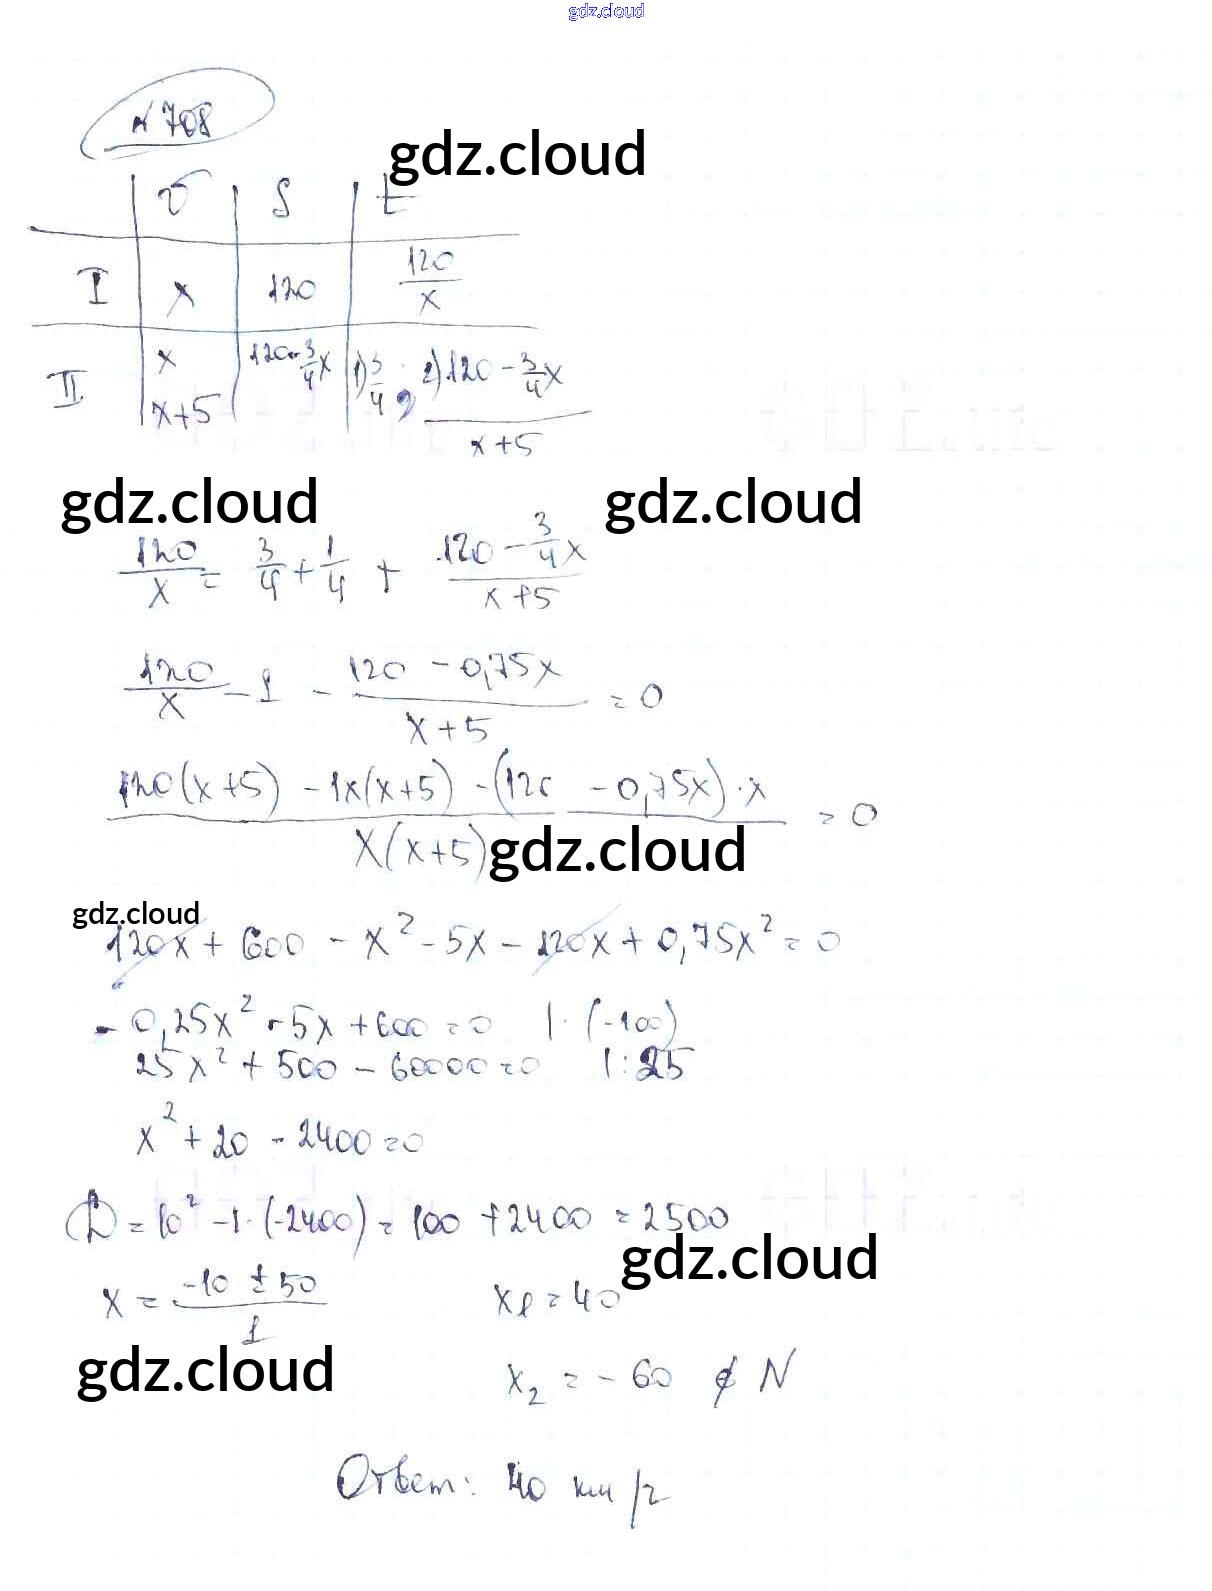 gdz.cloud
№ 708
gdz.cloud
v S t
I x 120 120/x
II x x+5 120 - 3/4x 1) 3/4 ; 2) (120 - 3/4x)/(x+5)
gdz.cloud gdz.cloud
120/x = 3/4 + 1/4 + (120 - 3/4x)/(x+5)
120/x - 1 - (120 - 0,75x)/(x+5) = 0
(120(x+5) - 1x(x+5) - (120 - 0,75x)·x)/(x(x+5)) = 0
gdz.cloud
gdz.cloud
120x + 600 - x² - 5x - 120x + 0,75x² = 0
- 0,25x² - 5x + 600 = 0 |·(-100)
25x² + 500 - 60000 = 0 |:25
x² + 20 - 2400 = 0
D = 10² - 1·(-2400) = 100 + 2400 = 2500
gdz.cloud
x = (-10 ± 50)/1 x₁ = 40
gdz.cloud
x₂ = - 60 ∉ N
Ответ: 40 км/ч